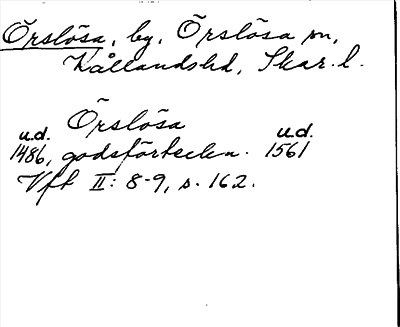 Örslösa, by, Örslösa sn,
Kållandshd, Skar. l.
Örslösa
u.d. u.d.
1486, godsförteckn. 1561
Vft II: 8-9, s. 162.